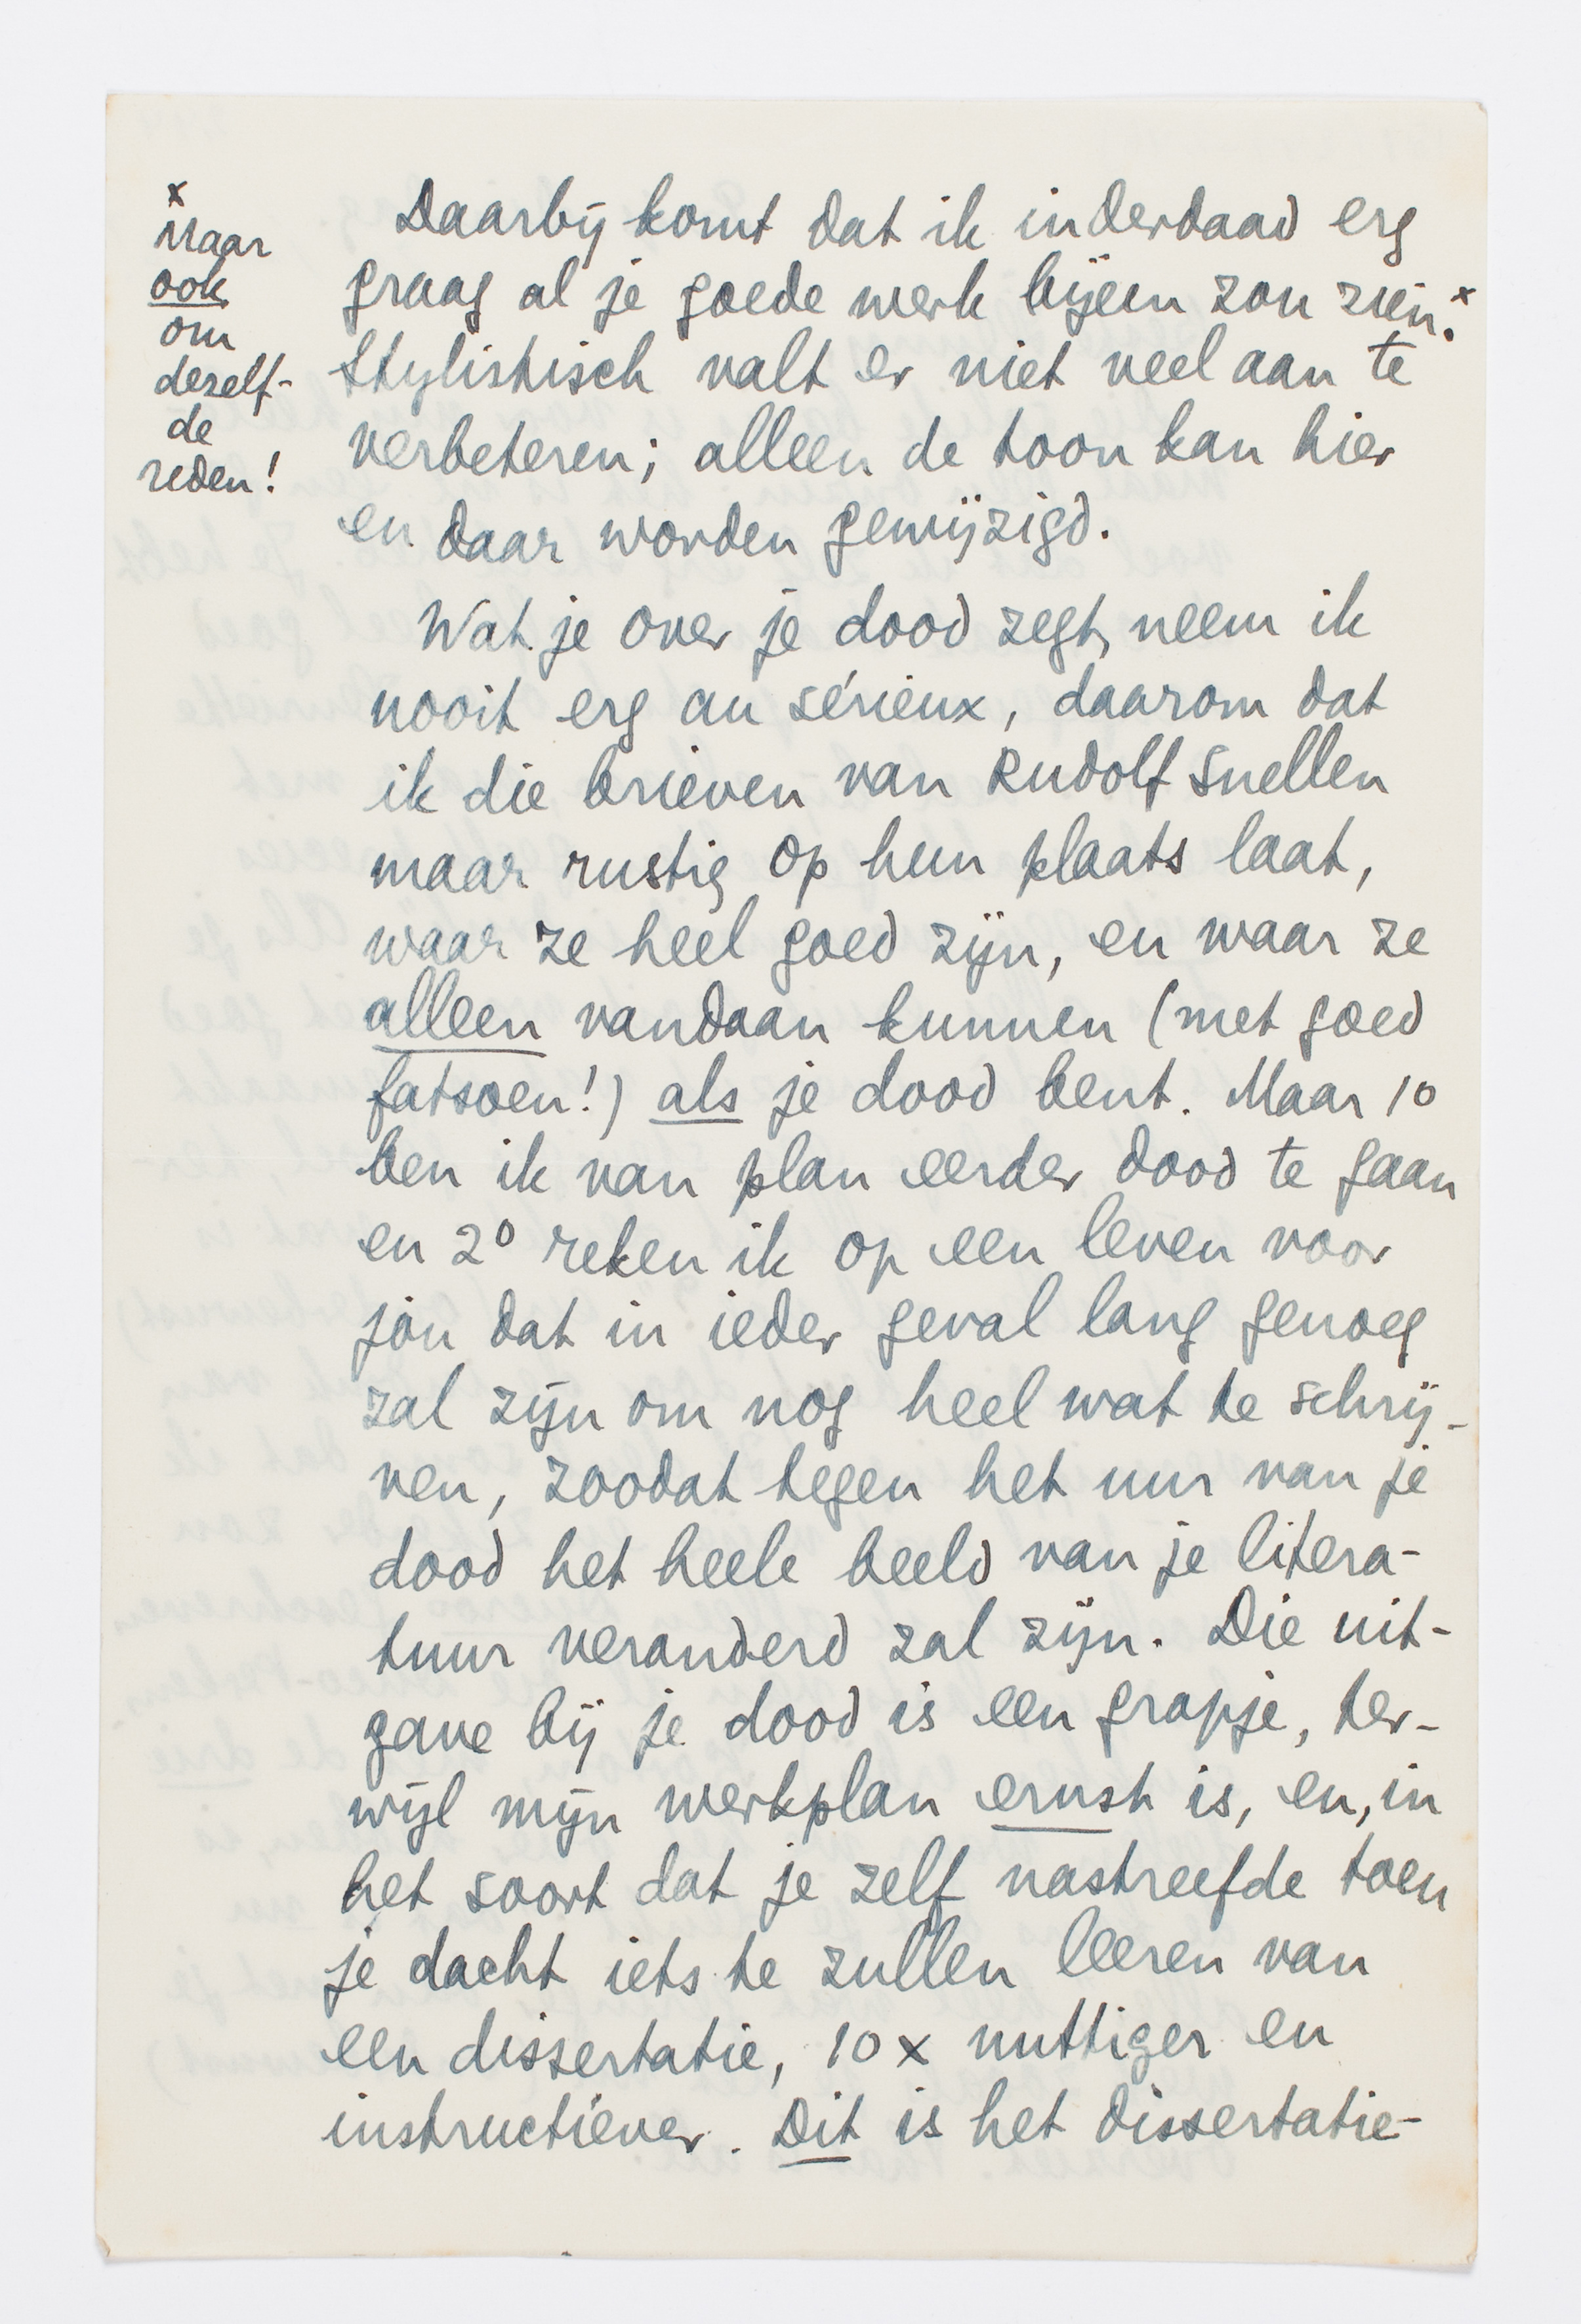 x
Maar
ook
om
deself-
de
reden!
Daarbij komt dat ik inderdaad erg
graag al je goede werk bijeen zou zien.x
Stylistisch valt er niet veel aan te
verbeteren; alleen de toon kan hier
en daar worden gewijzigd.
Wat je over je dood zegt, neem ik
nooit erg au sérieux, daarom dat
ik die brieven van Rudolf Snellen
maar rustig op hun plaats laat,
waar ze heel goed zijn, en waar ze
alleen vandaan kunnen (met goed
fatsoen!) als je dood bent. Maar 1o
ben ik van plan eerder dood te gaan
en 2o reken ik op een leven voor
jòu dat in ieder geval lang genoeg
zal zijn om nog heel wat te schrij-
ven, zoodat tegen het uur van je
dood het heele beeld van je litera-
tuur veranderd zal zijn. Die uit-
gave bij je dood is een grapje, ter-
wijl mijn werkplan ernst is, en, in
het soort dat je zelf nastreefde toen
je dacht iets te zullen leeren van
een dissertatie, 10 x nuttiger en
instructiever. Dit is het dissertatie-